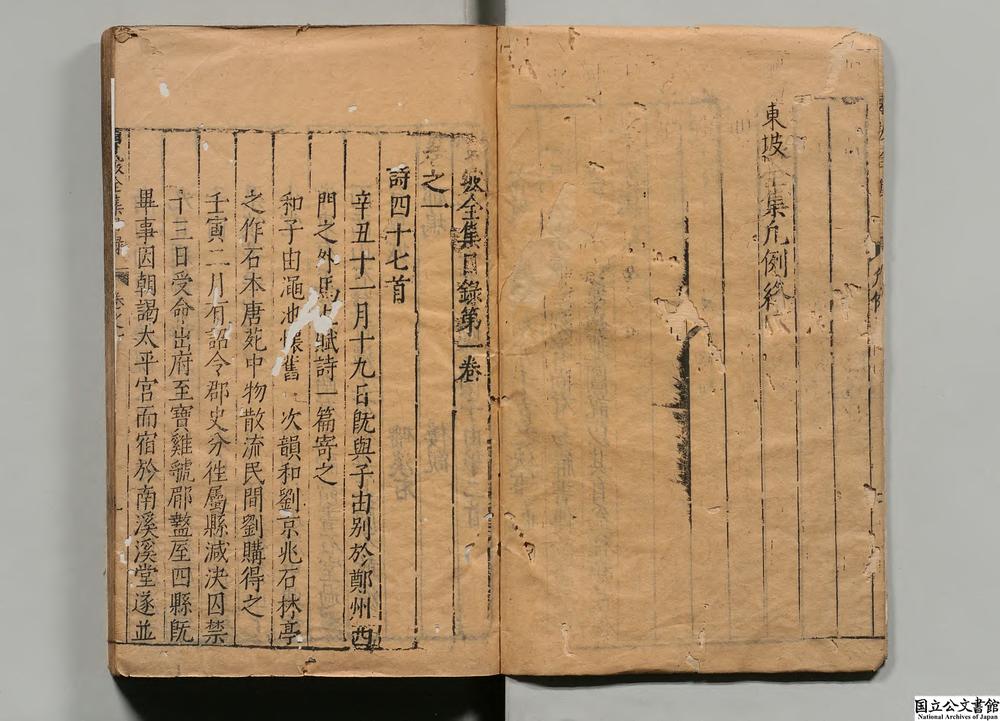 東坡全集凡例終
坡全集目錄第一卷
卷之一
詩四十七首
辛丑十一月十九日旣與子由别於鄭州西
門之外馬上賦詩一篇寄之
和子由澠池懷舊 次韻和劉京兆石林亭
之作石本唐苑中物散流民間劉購得之
壬寅二月有詔令郡吏分徃屬縣减決囚禁
十三日受命出府至寶雞虢郿盩厔四縣旣
畢事因朝謁太平宫而宿於南溪溪堂遂並
国立公文書館
National Archives of Japan